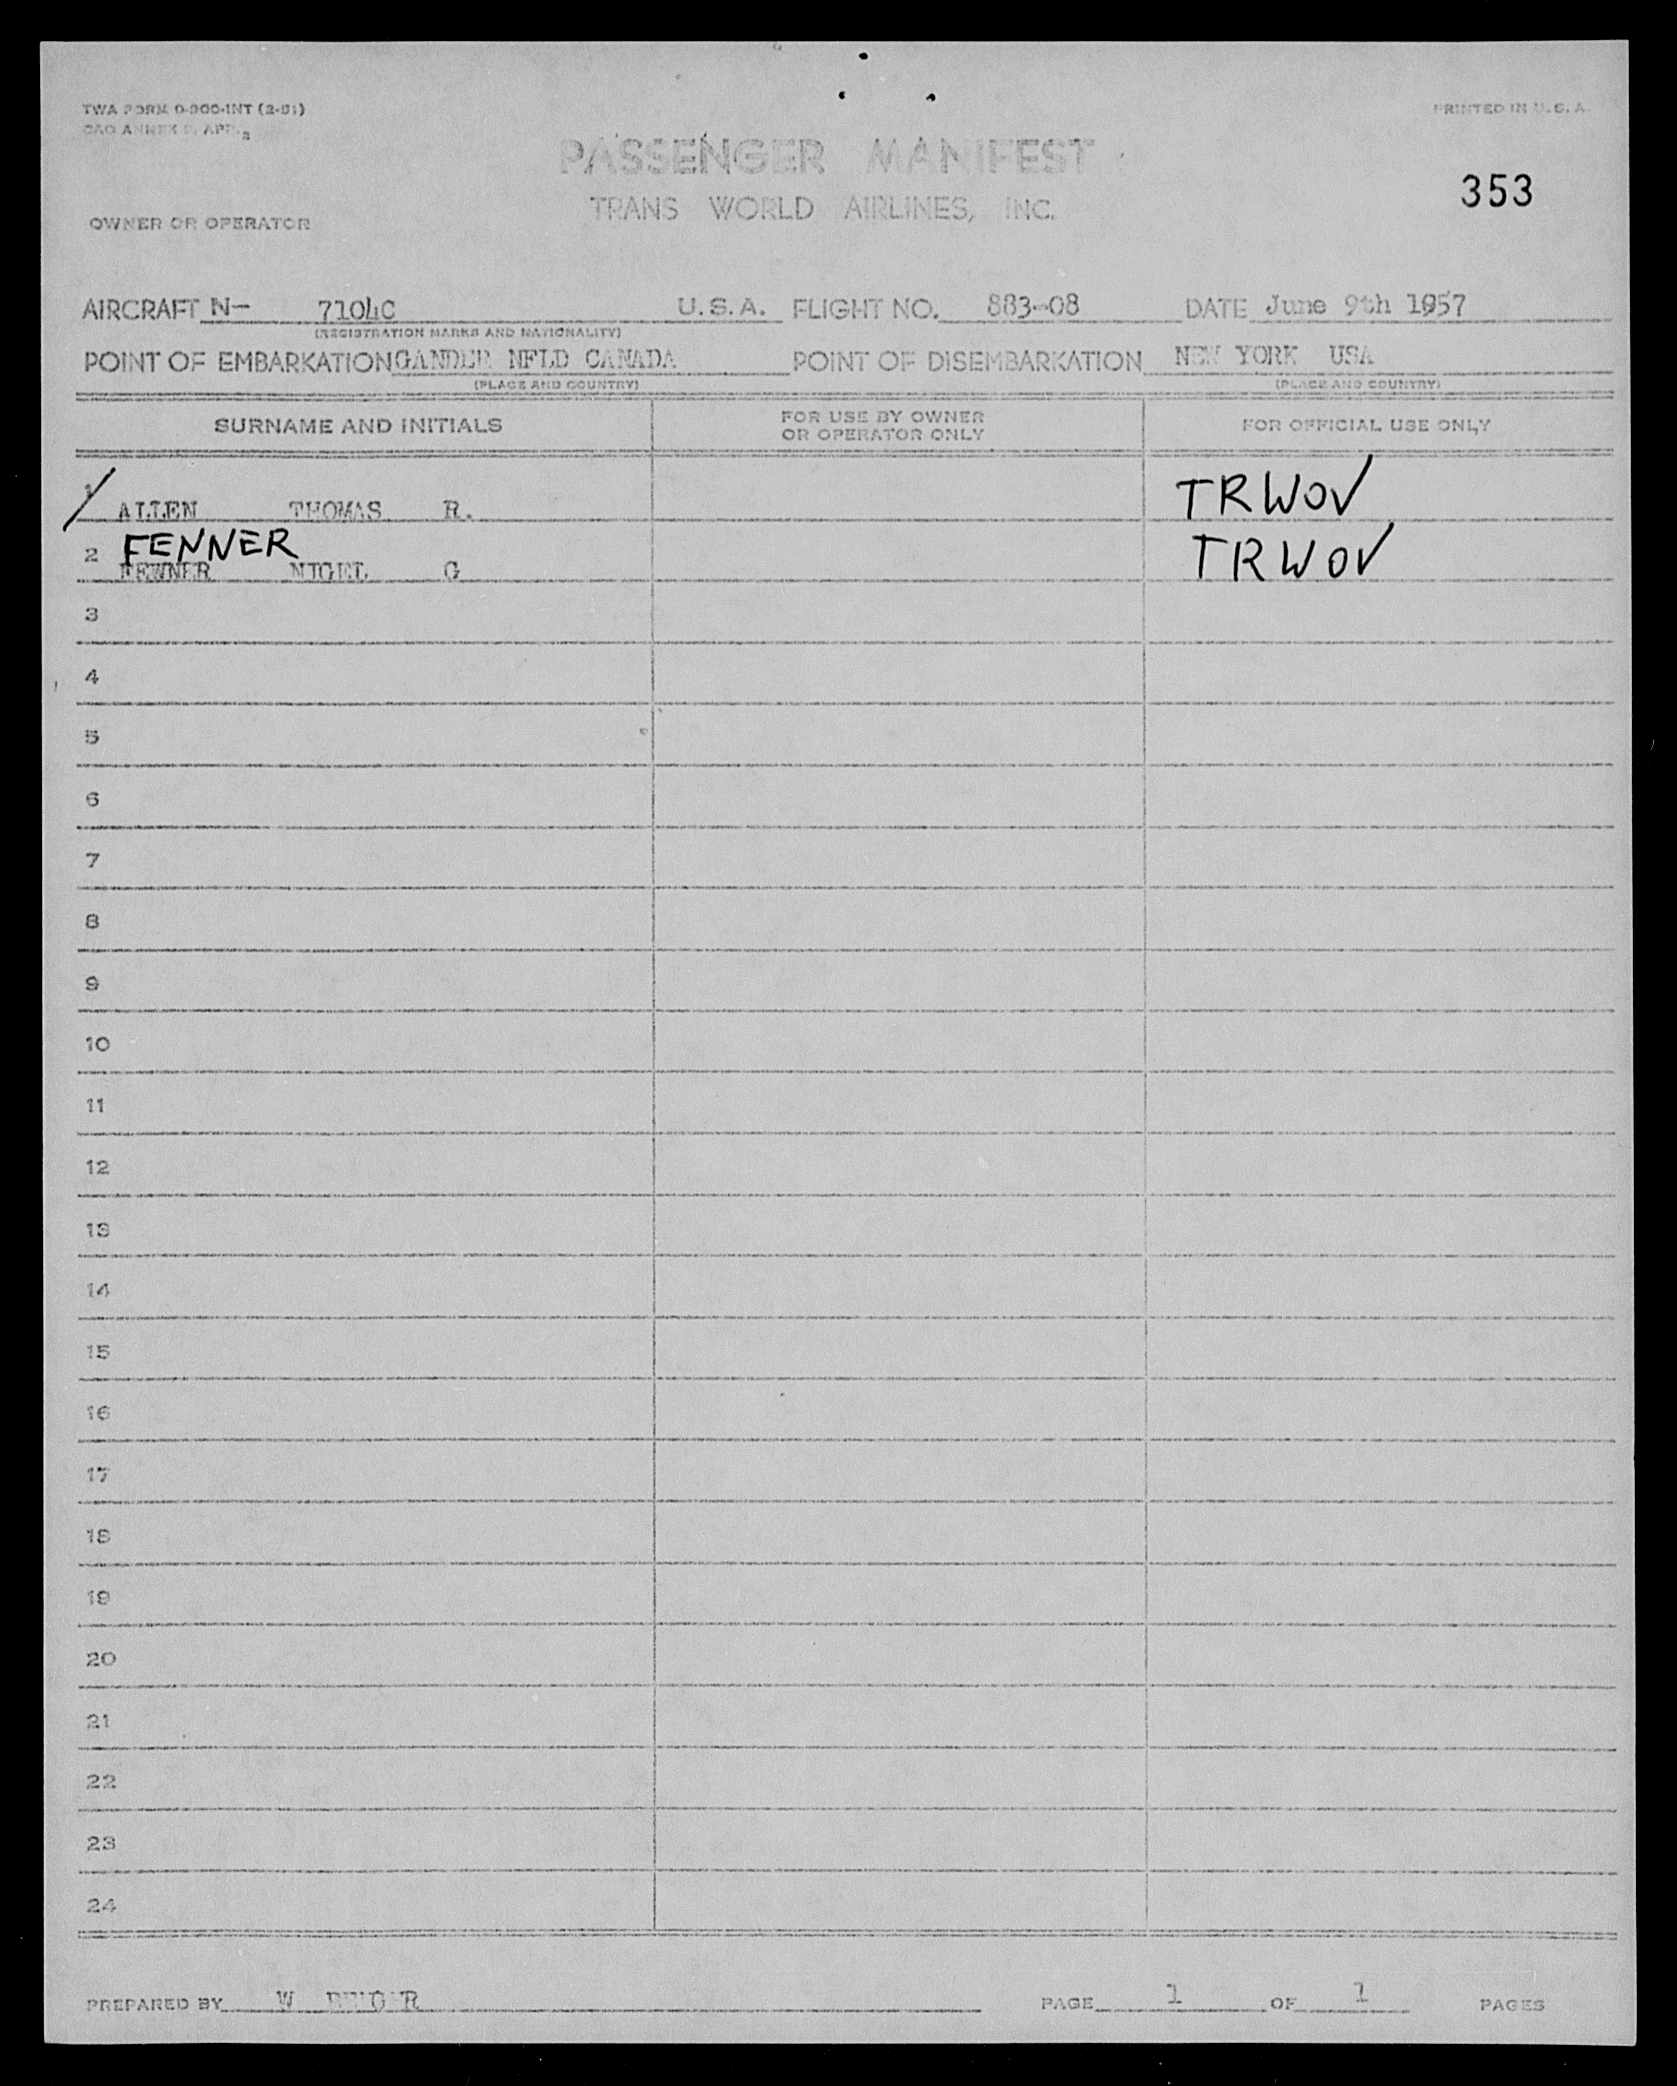 TWA FORM O-900-INT (2-51)
PRINTED IN U.S.A.
PASSENGER MANIFEST
353
TRANS WORLD AIRLINES, INC.
OWNER OR OPERATOR
AIRCRAFT N- 7104C U.S.A. FLIGHT NO. 883-08 DATE June 9th 1957
(REGISTRATION MARKS AND NATIONALITY)
POINT OF EMBARKATION GANDER NFLD CANADA POINT OF DISEMBARKATION NEW YORK USA
(PLACE AND COUNTRY) (PLACE AND COUNTRY)
SURNAME AND INITIALS FOR USE BY OWNER OR OPERATOR ONLY FOR OFFICIAL USE ONLY
1 ALLEN THOMAS R. TRWOV
FENNER
2 FEWNER NIGEL G TRWOV
3
4
5
6
7
8
9
10
11
12
13
14
15
16
17
18
19
20
21
22
23
24
PREPARED BY W PAGE 1 OF 1 PAGES